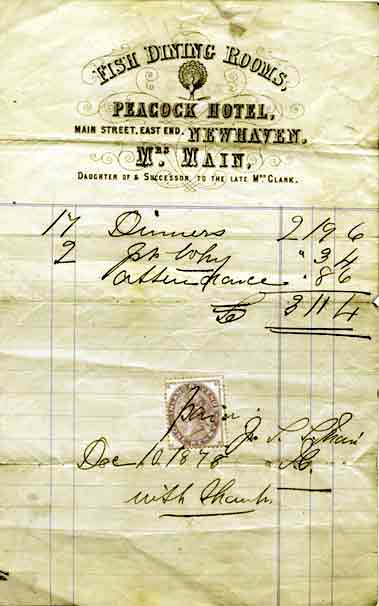 FISH DINING ROOMS,
PEACOCK HOTEL,
MAIN STREET, EAST END, NEWHAVEN.
MRS MAIN,
DAUGHTER OF & SUCCESSOR TO THE LATE MRS CLARK.
17 Dinners 2 19 6
2 Why " 3 4
Attendance " 8 6
£ 3 11 4
Paid
Dec 10. 1878
with thanks